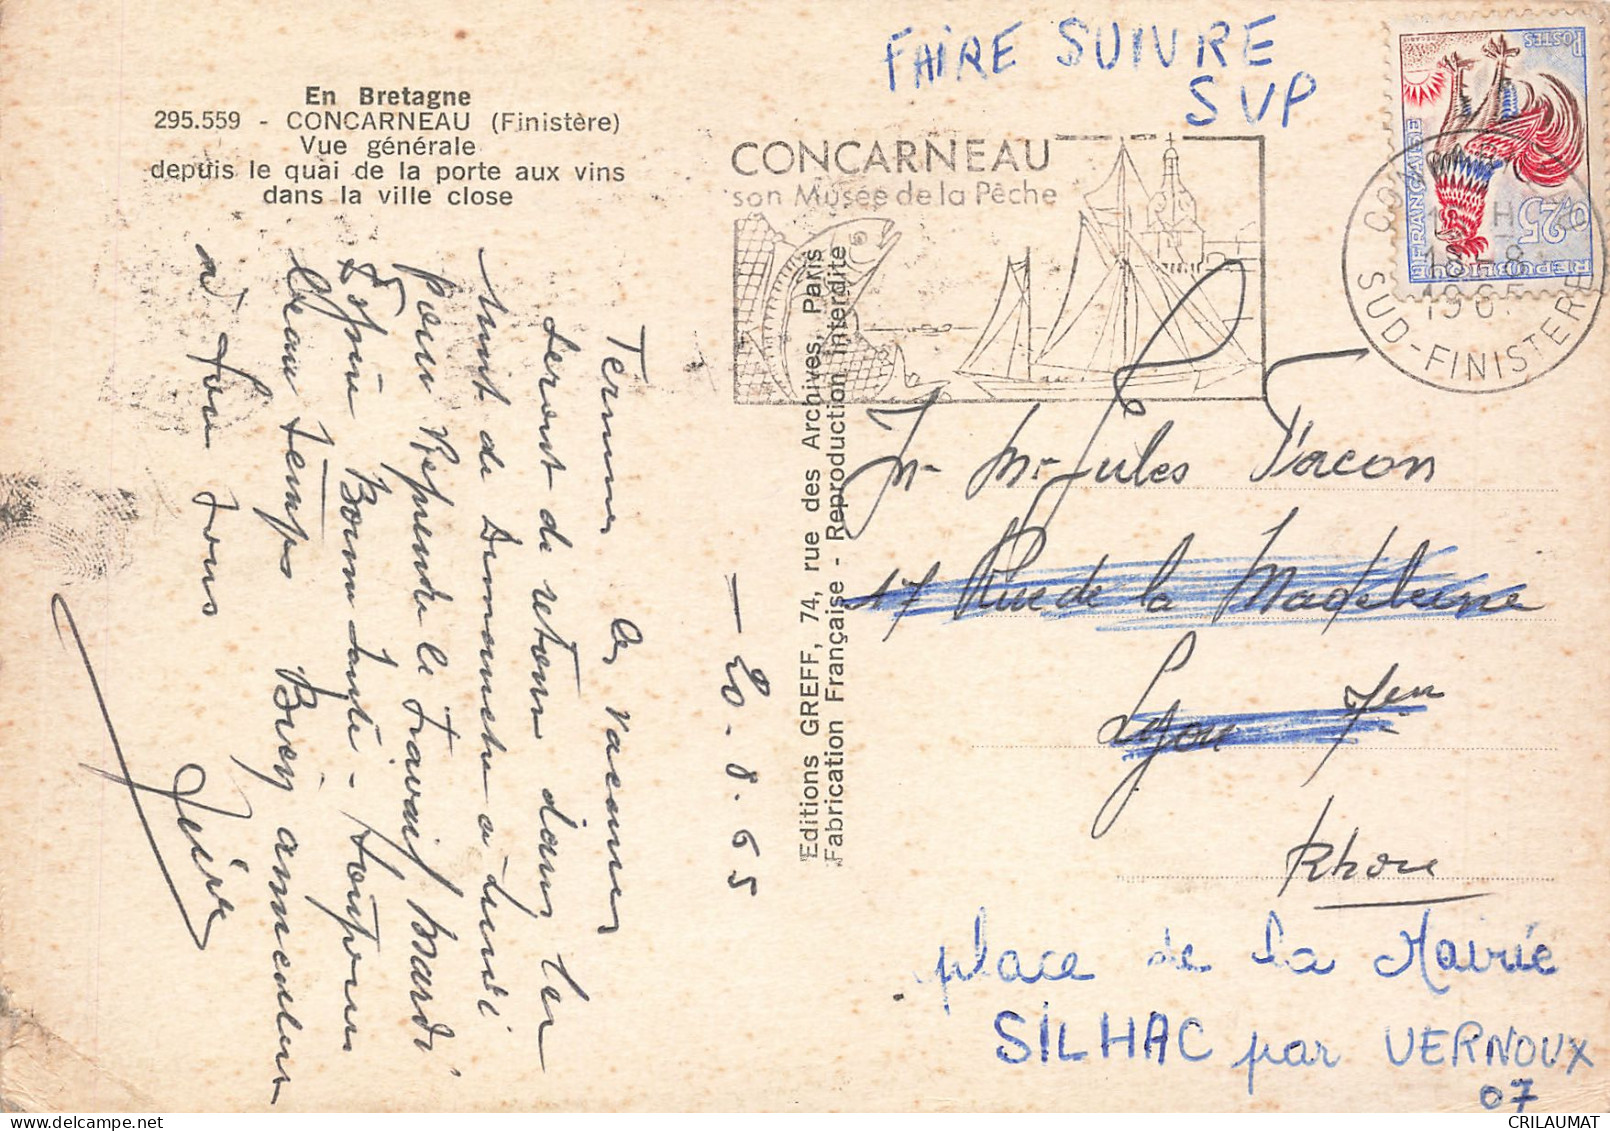 En Bretagne
295.559 - CONCARNEAU (Finistère)
Vue générale
depuis le quai de la porte aux vins
dans la ville close
FAIRE SUIVRE
SVP
CONCARNEAU
son Musée de la Pêche
POSTES
0,25
REPUBLIQUE FRANÇAISE
18-8
1965
SUD-FINISTERE
Editions GREFF, 74, rue des Archives, Paris
Fabrication Française - Reproduction interdite
20.8.65
vacances
seront de retour dans la
nuit de Dimanche à lundi
pour Reprendre le travail mardi
Bonne Santé - toujours
beau temps
à tous
Jules
17 Rue de la Madeleine
Lyon 7em
Rhone
place de la Mairie
SILHAC par VERNOUX
07
CRILAUMAT